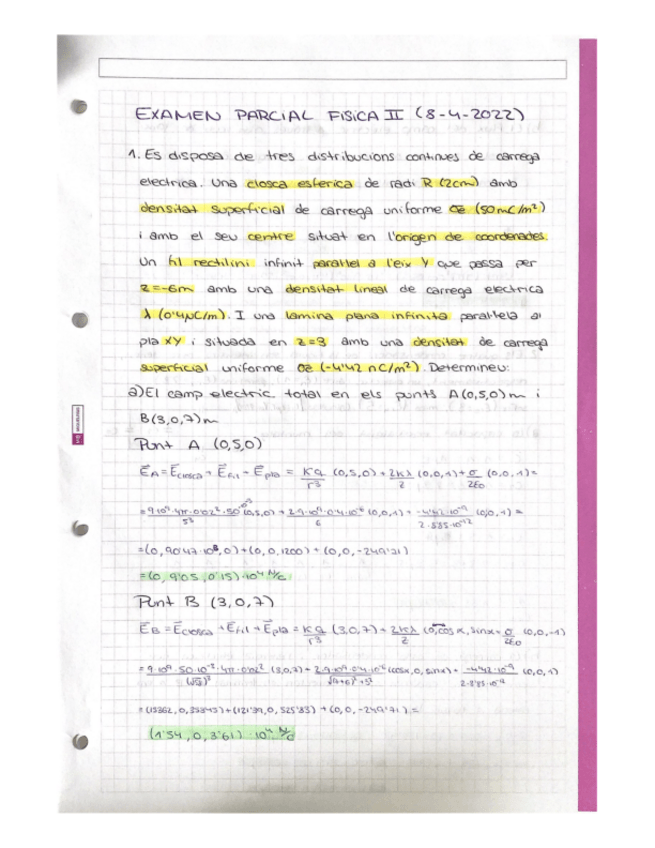 EXAMEN PARCIAL FISICA II (8-4-2022)
1. Es disposa de tres distribucions contínues de carrega
electrica. Una closca esferica de radi R (2cm) amb
densitat superficial de carrega uniforme (50mC/m²)
i amb el seu centre situat en l'origen de coordenades.
Un fil rectilini infinit paral·lel a l'eix Y que passa per
z=-6m amb una densitat lineal de carrega electrica
λ (0'4μC/m). I una lamina plana infinita paral·lela al
pla XY i situada en z=3 amb una densitat de carrega
superficial uniforme (-4'42 nC/m²). Determineu:
a) El camp electric total en els punts A(0,5,0)m i
B(3,0,7)m
Punt A (0,5,0)
E⃗A = E⃗closca + E⃗fil + E⃗pla = Kq/r³ (0,5,0) + 2Kλ/z (0,0,1) + σ/2ε0 (0,0,1) =
= 9·10⁹·4π·0'02²·50·10⁻³/5³ (0,5,0) + 2·9·10⁹·0'4·10⁻⁶/6 (0,0,1) + -4'42·10⁻⁹/2·8'85·10⁻¹² (0,0,1) =
=(0, 9047·10³, 0) + (0,0,1200) + (0,0,-249'71)
=(0, 9'05, 0'15)·10⁴ N/C
Punt B (3,0,7)
E⃗B = E⃗closca + E⃗fil + E⃗pla = Kq/r³ (3,0,7) + 2Kλ/z (0,cosα, sinα + σ/2ε0 (0,0,-1)
= 9·10⁹·50·10⁻³·4π·0'02² (3,0,7) + 2·9·10⁹·0'4·10⁻⁶/√(7+6)²+3² (cosα, 0, sinα) + -4'42·10⁻⁹ (0,0,1)
= (15362, 0, 35845) + (121'39, 0, 525'83) + (0,0,-249'71) =
(1'54, 0, 3'61)·10⁴ N/C